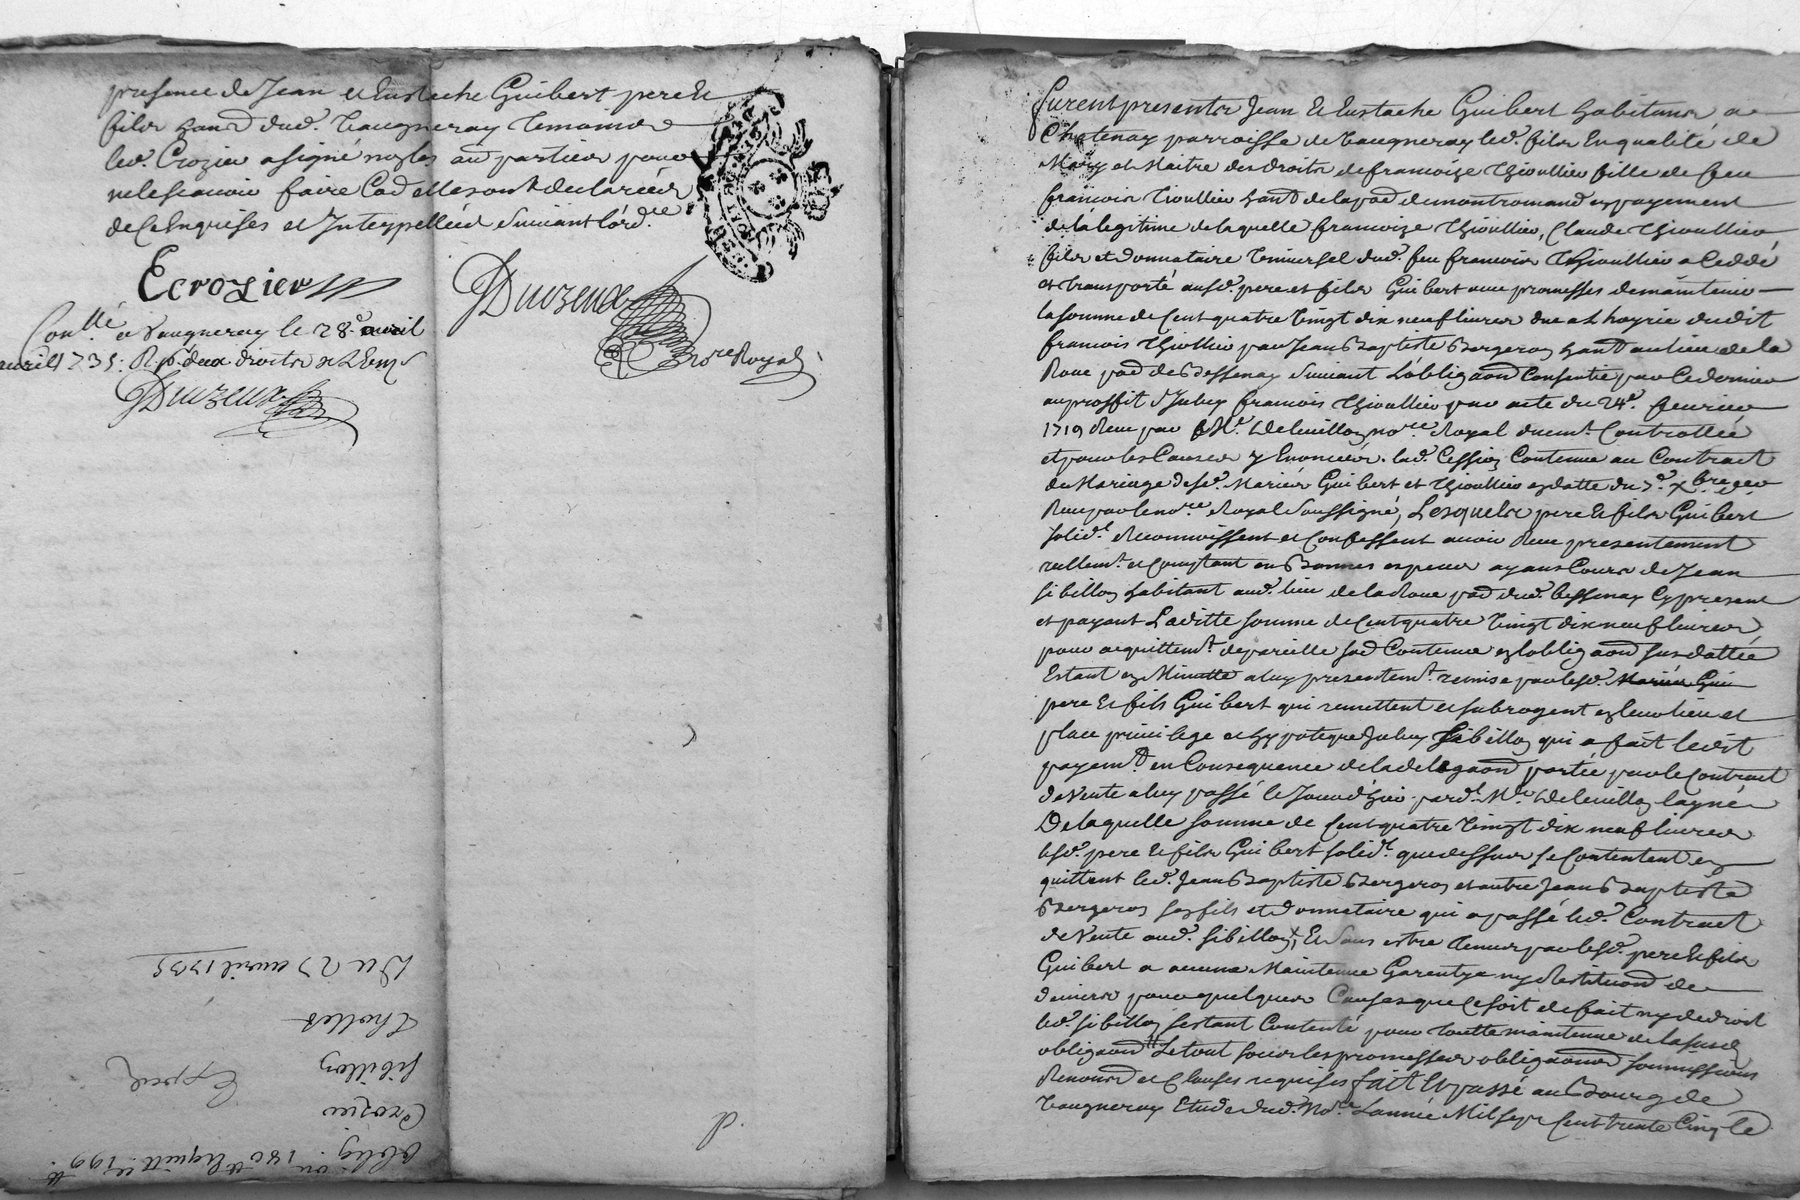 presence de Jean et Eustache Guibert pere et
fils hand dud. Vaugneray temoins
led. Crozier a signé no les au parties pour
ne le scavoir faire Cod elles ont declarées
de ce Enquises et Interpellées Suivant l'ord.ce
Ecrozier
Duvzeux
no.re Royal
Con.llé a Vaugneray le 28.e avril
avril 1735: R. p. deux droits
Duvzeux
Du 27 avril 1735
Thollet
Sibillon
Crozier
Expedé
oblig.on 180.tt et quitt. de 199.tt
Furent presents Jean Et Eustache Guibert habitans a
Chatenay parroisse de Vaugneray led. fils En qualité de
Mary et Maitre des droits de francoize Thioullier fille de feu
francois Tioullier hand de la pard de montromand en payement
de la legitime de laquelle francoize Thioullier, Claude Thioullier
fils et donnataire Universel dud. feu francois Thioullier a Ceddé
et transporté ausd. pere et fils Guibert avec promesses de maintenue
la somme de Cent quatre Vingt dix neuf livres due a l hoyrie dudit
francois Thiollier par Jean Baptiste Bergeron hand au lieu de la
Roue pard de Bessenay Suivant L'obligaond Consentie par Ce dernier
au proffit d'Iceluy francois Thioullier par acte du 24.e fevrier
1719 Receu par M.e Deleuillon no.re Royal duem.t Controllée
et pour les Causes y Enoncées. lad. Cession Contenue au Contract
de Mariage desd. Mariés Guibert et Thioullier en datte du 7.e X.bre der
Receu par le no.re Royal Soussigné, Lesquels pere Et fils Guibert
solid.t Reconnoissent et Confessent avoir Receu presentement
reellem.t et Comptant en Bonnes especes ayans Cours de Jean
Sibillon habitant aud. lieu de la Roue pard dud. bessenay Cy present
et payant Laditte somme de Cent quatre Vingt dix neuf livres
pour acquittem.t de pareille sod Contenue en lobligaond susdattée
Estant en Minutte a luy presentem.t remise par lesd. Mariés Gui
pere Et fils Guibert qui remettent et subrogent en leur lieu et
place privilege et hypoteque Iceluy Sibillon qui a fait ledit
payem.t en Consequence de la delegaond portée par le Contract
de Vente a luy passé le Jour d'hier pard.t M.e Deleuillon layné
De laquelle somme de Cent quatre Vingt dix neuf livres
lesd. pere Et fils Guibert solid.t que dessus se Contentent en
quittent led. Jean Baptiste Bergeron et autre Jean Baptiste
Bergeron son fils et donnataire qui a passé led. Contract
de Vente aud. Sibillon, Et Sans estre tenus par lesd. pere Et fils
Guibert a aucune Maintenue Garentye ny Restituond de
deniers pour quelques Causes que Ce soit de fait ny de droit
led. Sibillon sestant Contenté pour toutte maintenue de la susd
obligaond Le tout sous les promesses obligaond soumissions
Renond et Clauses requises fait Et passé au Bourg de
Vaugneray Etude dud. No.re Lannée Mil Sept Cent trente Cinq le